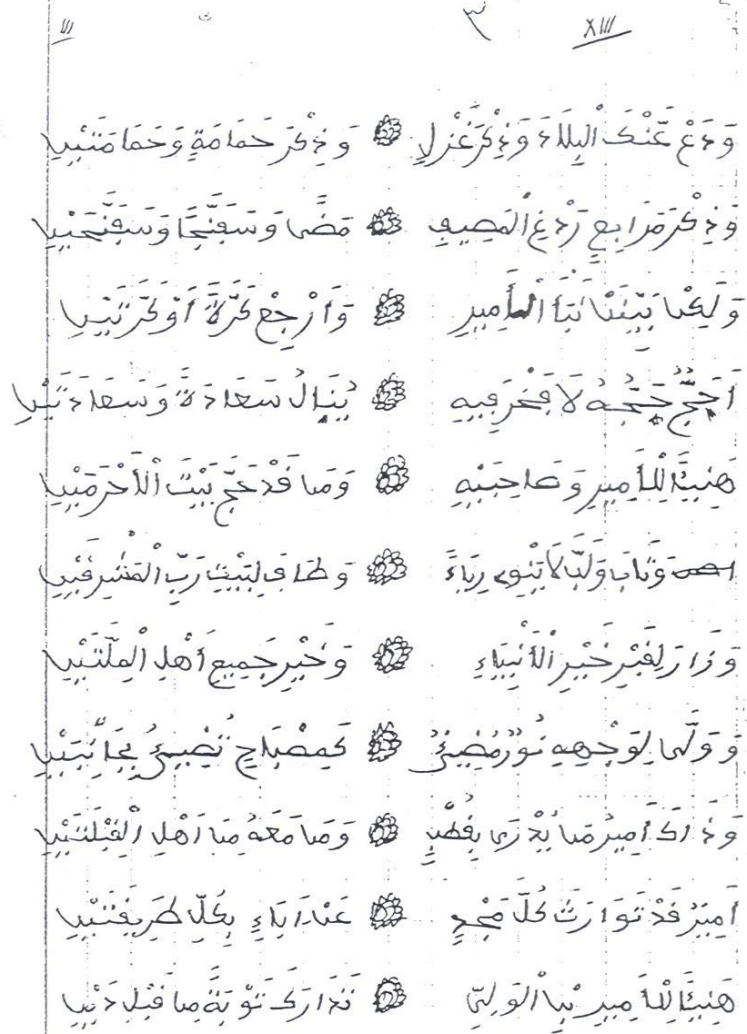 XIII ٣ III
وَدَعْ عَنْكَ الْبِلَادَ وَذِكْرَ غَزْلٍ ۞ وَذِكْرَ حَمَامَةٍ وَحَمَامَتَيْنِ
وَذِكْرَ مَرَابِعٍ رَدْغِ الْمَصِيفِ ۞ مَضَى وَسَفَنَّجًا وَسَفَنَّجَيْنِ
وَلَكِنْ بَيِّنَنْ نَبَأَ الْأَمِيرِ ۞ وَارْجِعْ كَرَّةً أَوْ كَرَّتَيْنِ
أَحَجٌّ حَجُّهُ لَا فَخْرَ فِيهِ ۞ يُنَالُ سَعَادَةً وَسَعَادَتَيْنِ
هَنِيئًا لِلْأَمِيرِ وَصَاحِبَيْهِ ۞ وَمَنْ قَدْ حَجَّ بَيْتَ الْأَحْرَمَيْنِ
وَتَابَ وَلَبَّ لَا يَنْوِي رِيَاءً ۞ وَطَافَ لِبَيْتِ رَبِّ الْمَشْرِقَيْنِ
وَزَارَ لِقَبْرِ خَيْرِ الْأَنْبِيَاءِ ۞ وَخَيْرِ جَمِيعِ أَهْلِ الْمِلَّتَيْنِ
وَوَلَّى لِوَجْهِهِ نُورٌ مُضِيئٌ ۞ كَمِصْبَاحٍ تُضِيئُ بِجَانِبَيْنِ
وَذَاكَ أَمِيرُ مَنْ يُدْرَى بِقُطْبٍ ۞ وَمَنْ مَعَهُ مِنَ أَهْلِ الْقِبْلَتَيْنِ
أَمِيرٌ قَدْ تَوَارَثَ كُلَّ مَجْدٍ ۞ عَنْ آبَاءٍ بِكُلِّ طَرِيقَتَيْنِ
هَنِيئًا لِلْأَمِيرِ بْنِ الْوَلِيِّ ۞ تَدَارَكَ تَوْبَةً مِنْ قَبْلِ دَيْنِ